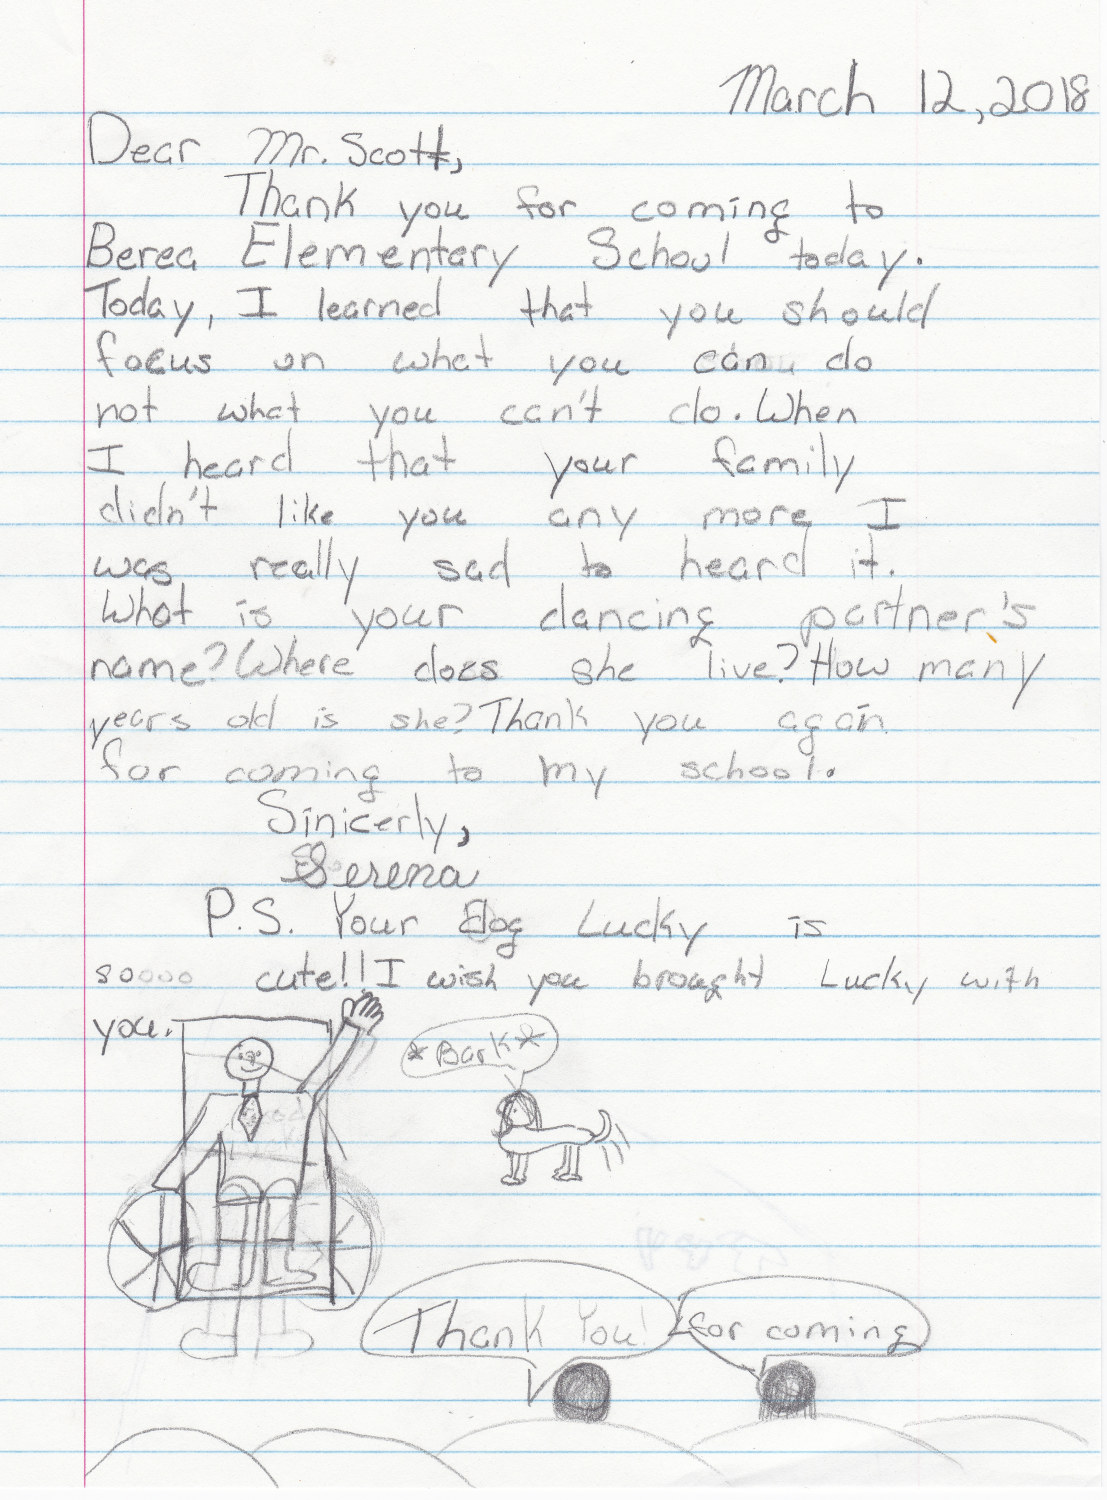 March 12, 2018
Dear Mr. Scott,
Thank you for coming to
Berea Elementary School today.
Today, I learned that you should
focus on what you can do
not what you can't do. When
I heard that your family
didn't like you any more I
was really sad to heard it.
What is your dancing partner's
name? Where does she live? How many
years old is she? Thank you again
for coming to my school.
Sinicerly,
Serena
P.S. Your dog Lucky is
soooo cute!! I wish you brought Lucky with
you.
*Bark*
Thank You!
for coming